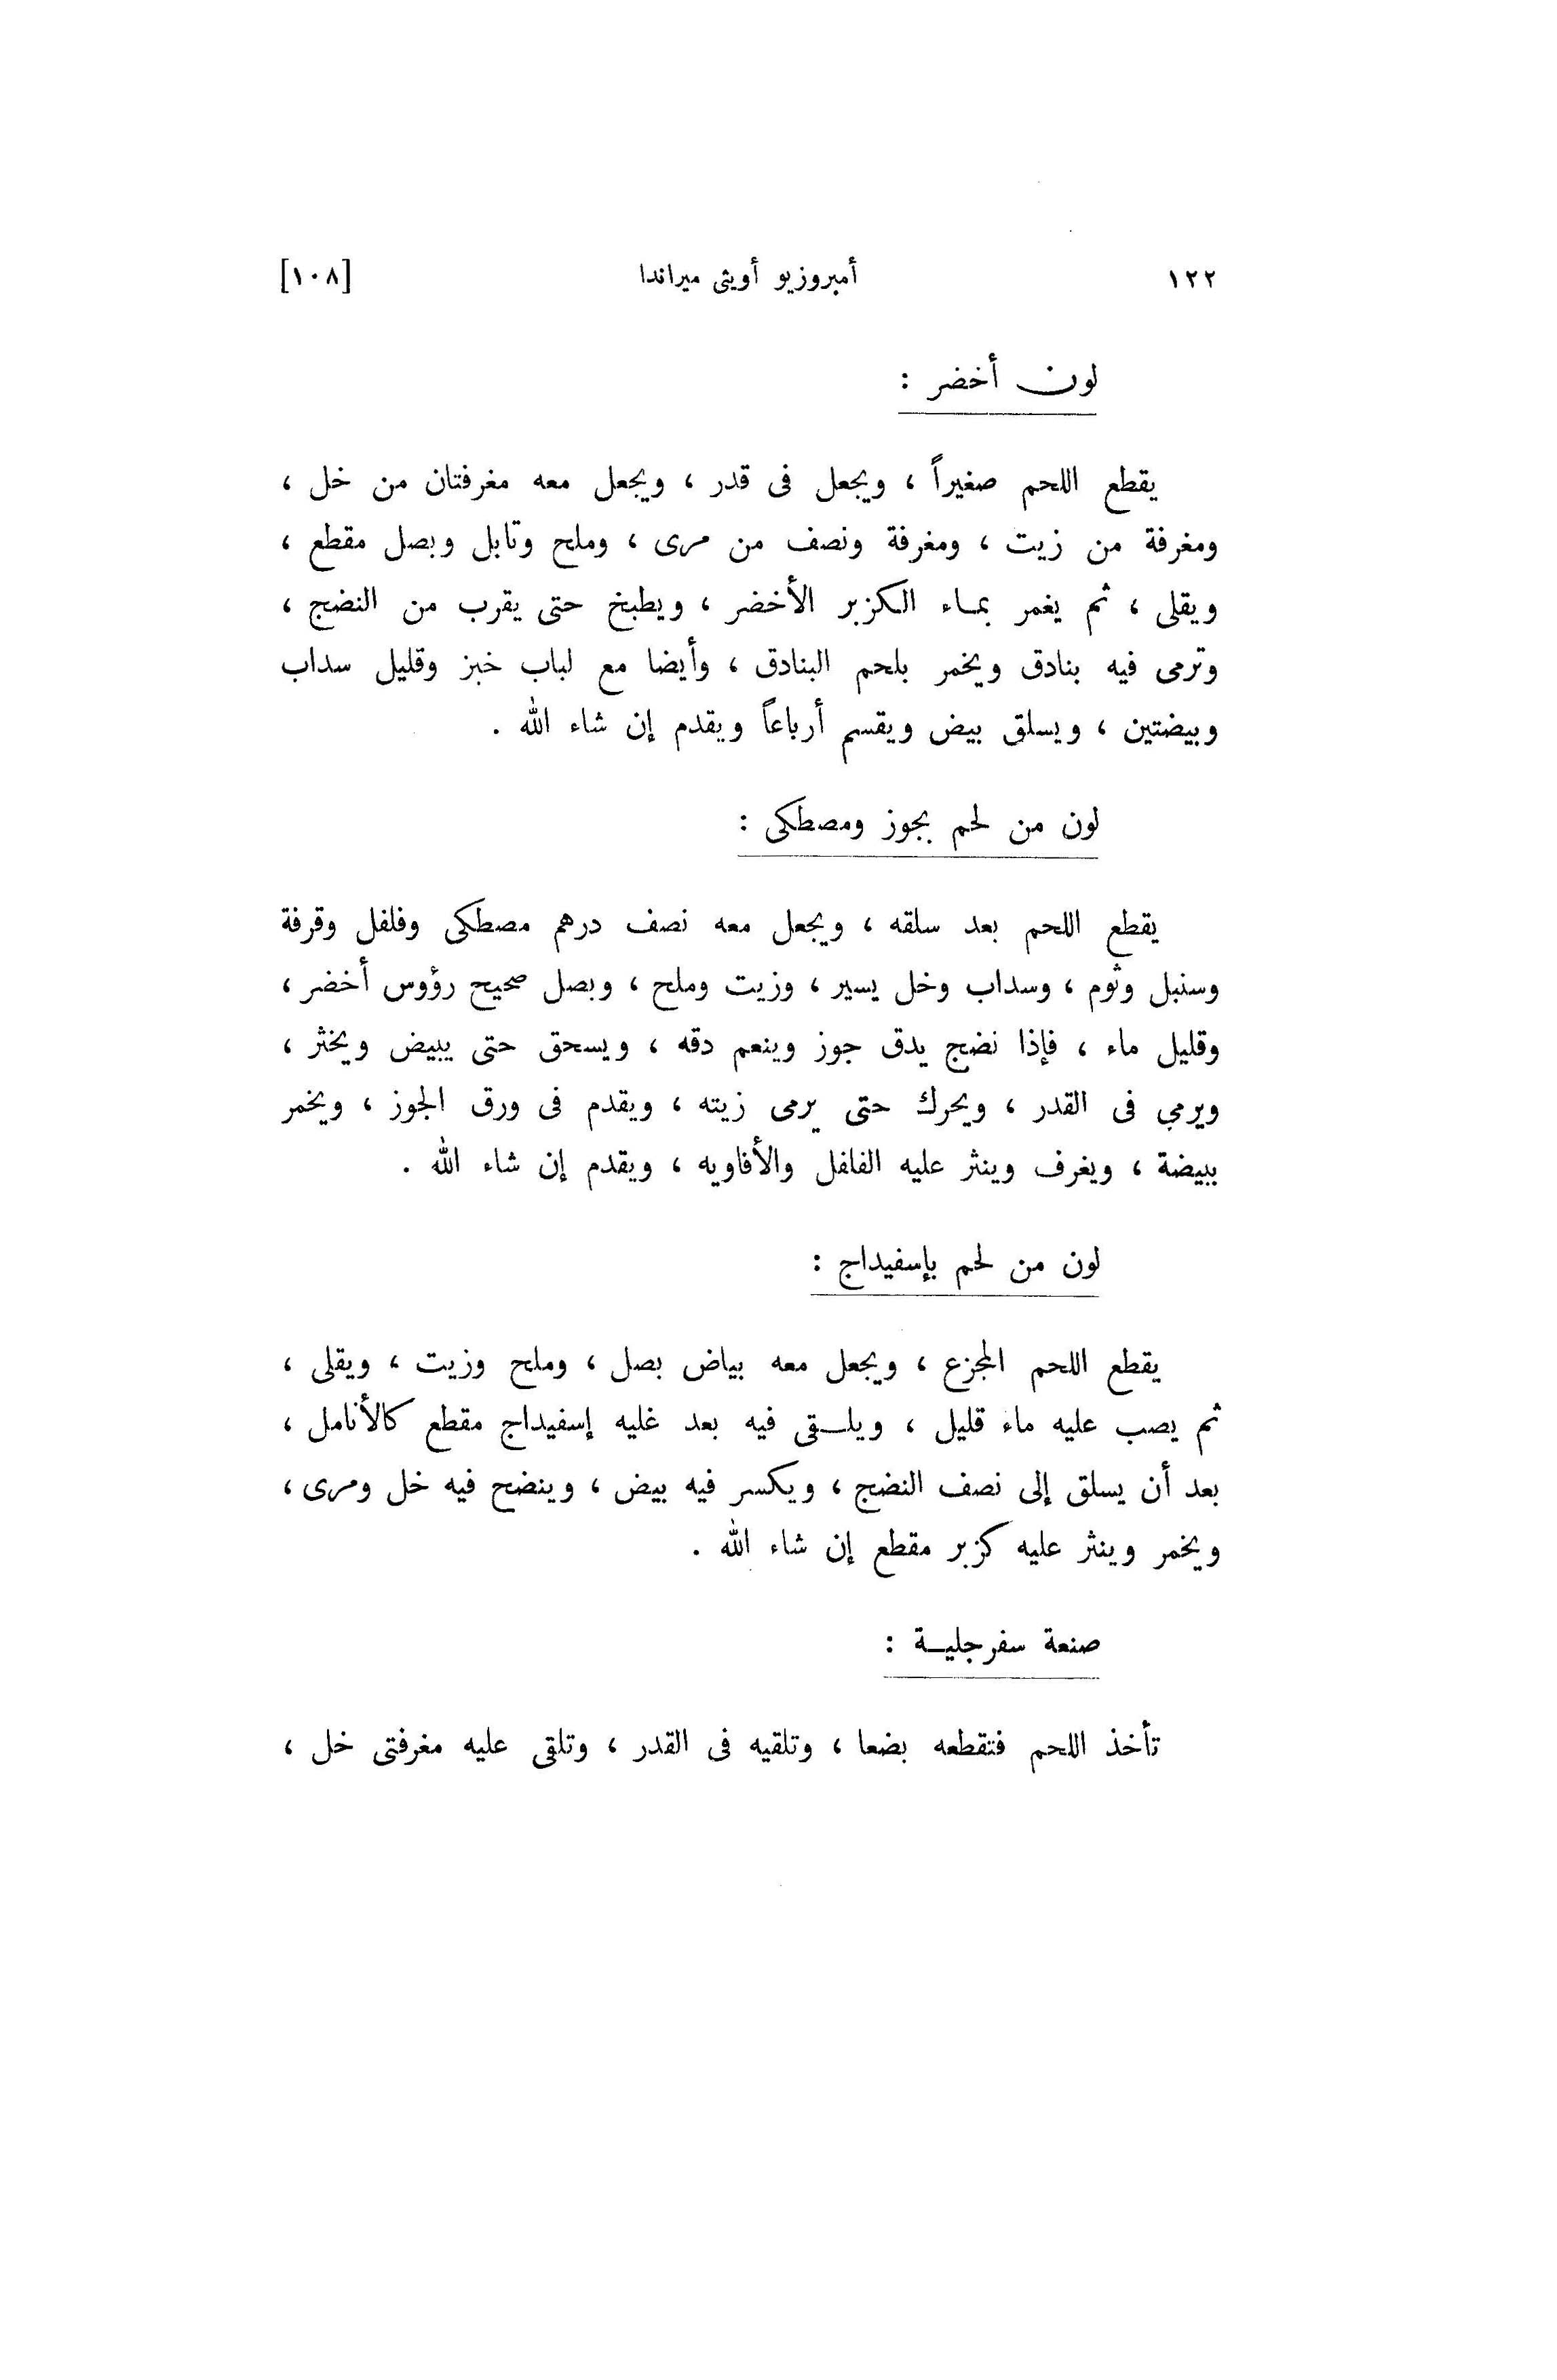 ١٢٢ أمبروزيو أويثى ميراندا [١٠٨]
لون أخضر :
يقطع اللحم صغيراً ، ويجعل فى قدر ، ويجعل معه مغرفتان من خل ،
ومغرفة من زيت ، ومغرفة ونصف من مرى ، وملح وتابل وبصل مقطع ،
ويقلى ، ثم يغمر بماء الكزبر الأخضر ، ويطبخ حتى يقرب من النضج ،
وترمى فيه بنادق ويخمر بلحم البنادق ، وأيضا مع لباب خبز وقليل سداب
وبيضتين ، ويسلق بيض ويقسم أرباعاً ويقدم إن شاء الله .
لون من لحم بجوز ومصطكى :
يقطع اللحم بعد سلقه ، ويجعل معه نصف درهم مصطكى وفلفل وقرفة
وسنبل وثوم ، وسداب وخل يسير ، وزيت وملح ، وبصل صحيح رؤوس أخضر ،
وقليل ماء ، فإذا نضج يدق جوز وينعم دقه ، ويسحق حتى يبيض ويخثر ،
ويرمي فى القدر ، ويحرك حتى يرمى زيته ، ويقدم فى ورق الجوز ، ويخمر
ببيضة ، ويغرف وينثر عليه الفلفل والأفاويه ، ويقدم إن شاء الله .
لون من لحم بإسفيداج :
يقطع اللحم المجزع ، ويجعل معه بياض بصل ، وملح وزيت ، ويقلى ،
ثم يصب عليه ماء قليل ، ويلقى فيه بعد غليه إسفيداج مقطع كالأنامل ،
بعد أن يسلق إلى نصف النضج ، ويكسر فيه بيض ، وينضح فيه خل ومرى ،
ويخمر وينثر عليه كزبر مقطع إن شاء الله .
صنعة سفرجلية :
تأخذ اللحم فتقطعه بضعا ، وتلقيه فى القدر ، وتلقى عليه مغرفتى خل ،